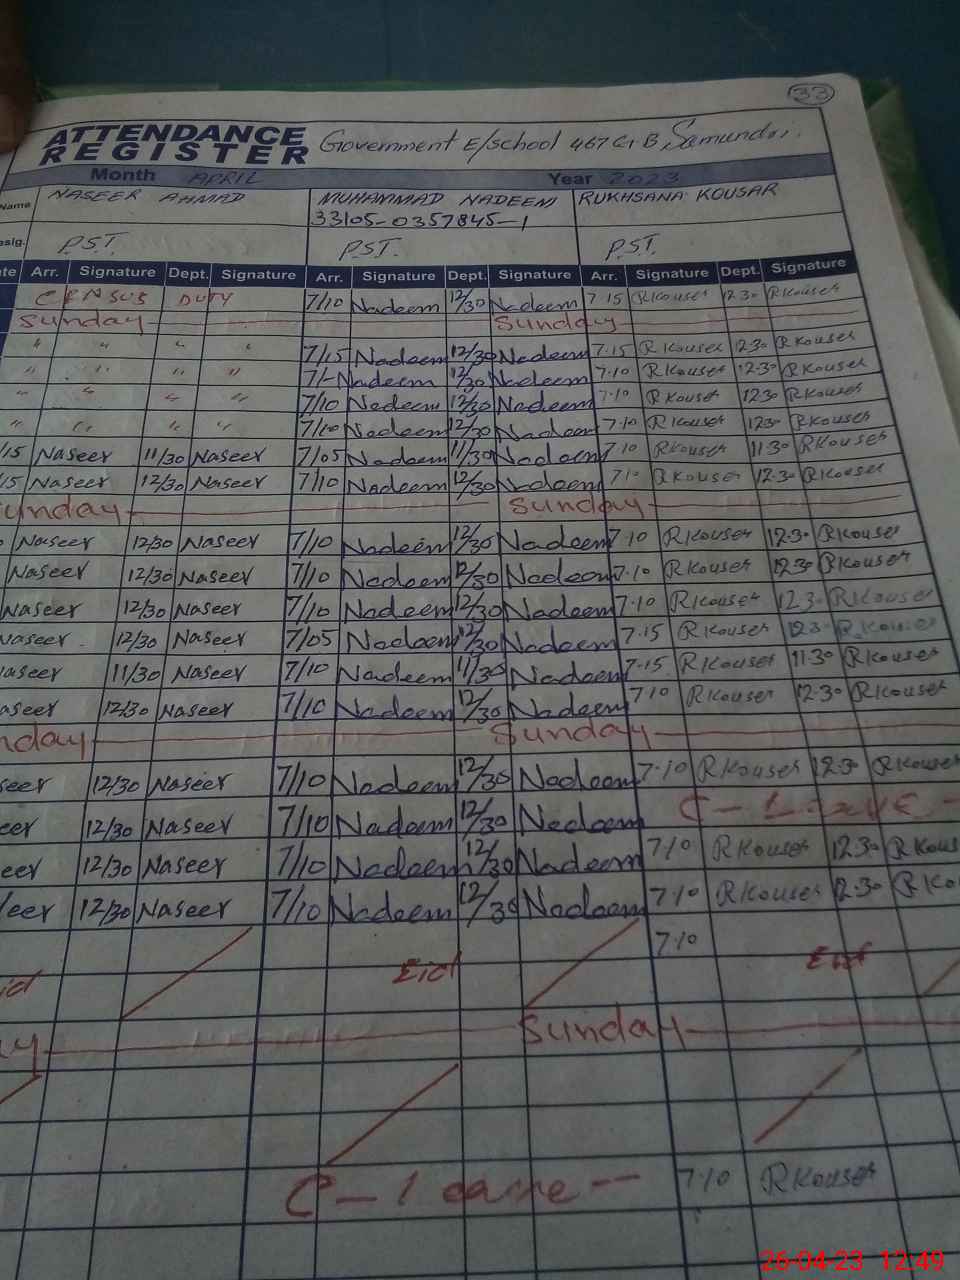 33
ATTENDANCE
REGISTER Government E/School 467 G.B Samundri.
Month APRIL Year 2023
Name NASEER AHMAD MUHAMMAD NADEEM RUKHSANA KOUSAR
33105-0357845-1
esig. P.S.T. P.S.T. P.S.T.
te Arr. Signature Dept. Signature Arr. Signature Dept. Signature Arr. Signature Dept. Signature
CENSUS DUTY 7/10 Nadeem 12/30 Nadeem 7.15 RKouser 12.30 RKouser
Sunday Sunday
" " " " 7/15 Nadeem 12/30 Nadeem 7.15 RKouser 12.30 RKouser
" " " " 7/- Nadeem 12/30 Nadeem 7.10 RKouser 12.30 RKouser
" " " " 7/10 Nadeem 12/30 Nadeem 7.10 RKouser 12.30 RKouser
" " " " 7/10 Nadeem 12/30 Nadeem 7.10 RKouser 12.30 RKouser
/15 Naseer 11/30 Naseer 7/05 Nadeem 11/30 Nadeem 7.10 RKouser 11.30 RKouser
/15 Naseer 12/30 Naseer 7/10 Nadeem 12/30 Nadeem 7.10 RKouser 12.30 RKouser
unday Sunday
Naseer 12/30 Naseer 7/10 Nadeem 12/30 Nadeem 7.10 RKouser 12.30 RKouser
Naseer 12/30 Naseer 7/10 Nadeem 12/30 Nadeem 7.10 RKouser 12.30 RKouser
Naseer 12/30 Naseer 7/10 Nadeem 12/30 Nadeem 7.10 RKouser 12.3 RKouser
Naseer 12/30 Naseer 7/05 Nadeem 12/30 Nadeem 7.15 RKouser 12.3 RKouser
aseer 11/30 Naseer 7/10 Nadeem 11/30 Nadeem 7.15 RKouser 11.30 RKouser
aseer 12/30 Naseer 7/10 Nadeem 12/30 Nadeem 7.10 RKouser 12.30 RKouser
nday Sunday
seer 12/30 Naseer 7/10 Nadeem 12/30 Nadeem 7.10 RKouser 12.30 RKouser
eer 12/30 Naseer 7/10 Nadeem 12/30 Nadeem C - Leave -
eer 12/30 Naseer 7/10 Nadeem 12/30 Nadeem 7.10 RKouser 12.30 RKous
eer 12/30 Naseer 7/10 Nadeem 12/30 Nadeem 7.10 RKouser 12.30 RKo
7.10
id Eid Eid
ay Sunday
C - Leave - 7.10 RKouser
26-04-23 12:49